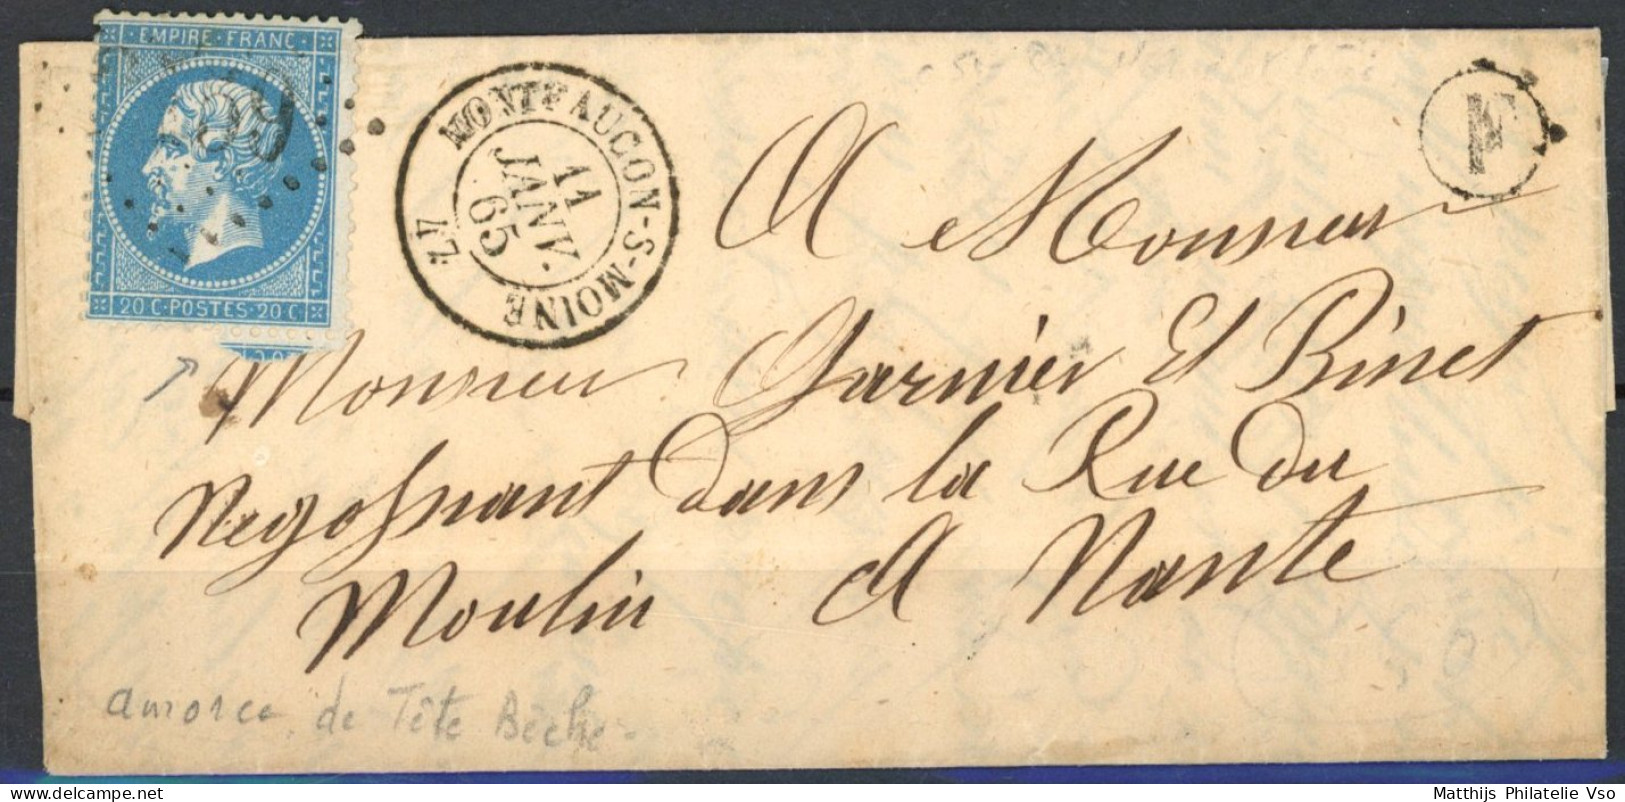 EMPIRE FRANC
20 C·POSTES·20 C
MONTFAUCON-S-MOINE
11
JANV.
65
47
F
A Monsieur
Monsieur Garnier Et Binet
Negosnant dans la Rue du
Moulin A Nante
amorce de Tête Bèche
Matthijs Philatelie Vso